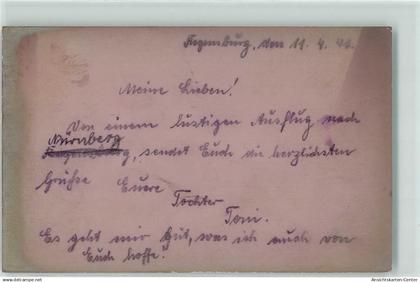 Regensburg, den 11. 4. 42.
Meine Lieben!
Von einem lustigen Ausflug nach
Nürnberg
Regensburg, sendet Euch die herzlichsten
Grüsse Euere
Tochter
Toni.
Es geht mir gut, was ich auch von
Euch hoffe.
www.ansichtskarten-center.de